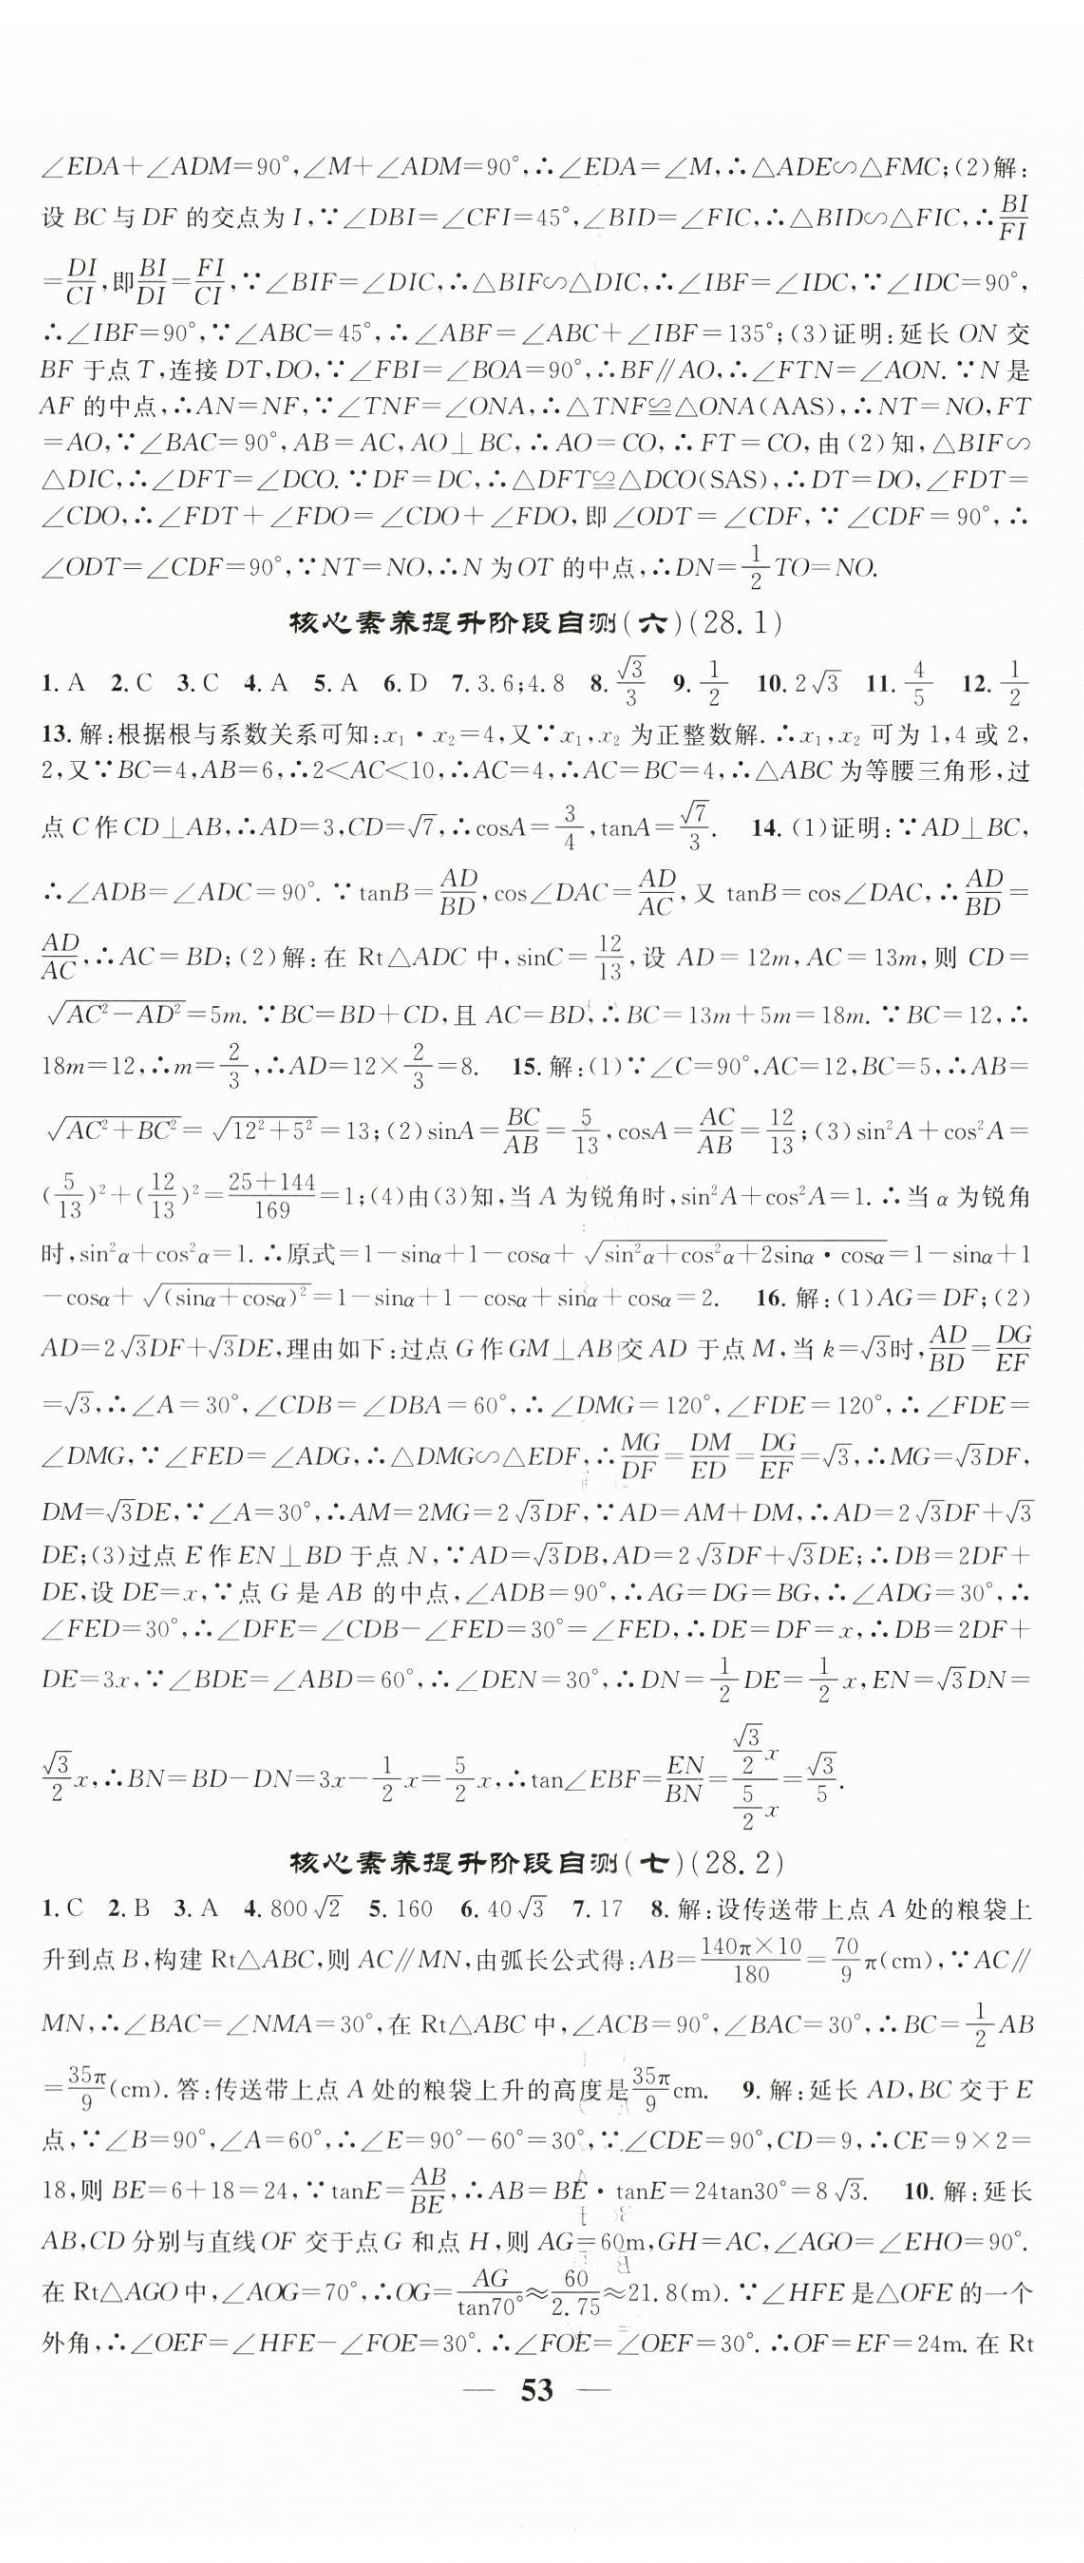 ∠EDA+∠ADM=90°,∠M+∠ADM=90°,∴∠EDA=∠M,∴△ADE∽△FMC;(2)解:
设 BC 与 DF 的交点为 I,∵∠DBI=∠CFI=45°,∠BID=∠FIC,∴△BID∽△FIC,∴BI/FI
=DI/CI,即BI/DI=FI/CI,∵∠BIF=∠DIC,∴△BIF∽△DIC,∴∠IBF=∠IDC,∵∠IDC=90°,
∴∠IBF=90°,∵∠ABC=45°,∴∠ABF=∠ABC+∠IBF=135°;(3)证明:延长 ON 交
BF 于点 T,连接 DT,DO,∵∠FBI=∠BOA=90°,∴BF∥AO,∴∠FTN=∠AON.∵N 是
AF 的中点,∴AN=NF,∵∠TNF=∠ONA,∴△TNF≌△ONA(AAS),∴NT=NO,FT
=AO,∵∠BAC=90°,AB=AC,AO⊥BC,∴AO=CO,∴FT=CO,由(2)知,△BIF∽
△DIC,∴∠DFT=∠DCO.∵DF=DC,∴△DFT≌△DCO(SAS),∴DT=DO,∠FDT=
∠CDO,∴∠FDT+∠FDO=∠CDO+∠FDO,即∠ODT=∠CDF,∵∠CDF=90°,∴
∠ODT=∠CDF=90°,∵NT=NO,∴N 为OT 的中点,∴DN=1/2 TO=NO.
核心素养提升阶段自测(六)(28.1)
1. A 2. C 3. C 4. A 5. A 6. D 7. 3.6;4.8 8. √3/3 9. 1/2 10. 2√3 11. 4/5 12. 1/2
13. 解:根据根与系数关系可知:x₁·x₂=4,又∵x₁,x₂ 为正整数解.∴x₁,x₂ 可为 1,4 或 2,
2,又∵BC=4,AB=6,∴2<AC<10,∴AC=4,∴AC=BC=4,∴△ABC 为等腰三角形,过
点 C 作 CD⊥AB,∴AD=3,CD=√7,∴cosA=3/4,tanA=√7/3. 14. (1)证明:∵AD⊥BC,
∴∠ADB=∠ADC=90°.∵tanB=AD/BD,cos∠DAC=AD/AC,又 tanB=cos∠DAC,∴AD/BD=
AD/AC,∴AC=BD;(2)解:在 Rt△ADC 中,sinC=12/13,设 AD=12m,AC=13m,则 CD=
√(AC²−AD²)=5m.∵BC=BD+CD,且 AC=BD,∴BC=13m+5m=18m.∵BC=12,∴
18m=12,∴m=2/3,∴AD=12×2/3=8. 15. 解:(1)∵∠C=90°,AC=12,BC=5,∴AB=
√(AC²+BC²)=√(12²+5²)=13;(2)sinA=BC/AB=5/13,cosA=AC/AB=12/13;(3)sin²A+cos²A=
(5/13)²+(12/13)²=(25+144)/169=1;(4)由(3)知,当 A 为锐角时,sin²A+cos²A=1.∴当 α 为锐角
时,sin²α+cos²α=1.∴原式=1−sinα+1−cosα+√(sin²α+cos²α+2sinα·cosα)=1−sinα+1
−cosα+√((sinα+cosα)²)=1−sinα+1−cosα+sinα+cosα=2. 16. 解:(1)AG=DF;(2)
AD=2√3DF+√3DE,理由如下:过点 G 作 GM⊥AB 交 AD 于点 M,当 k=√3时,AD/BD=DG/EF
=√3,∴∠A=30°,∠CDB=∠DBA=60°,∴∠DMG=120°,∠FDE=120°,∴∠FDE=
∠DMG,∵∠FED=∠ADG,∴△DMG∽△EDF,∴MG/DF=DM/ED=DG/EF=√3,∴MG=√3DF,
DM=√3DE,∵∠A=30°,∴AM=2MG=2√3DF,∵AD=AM+DM,∴AD=2√3DF+√3
DE;(3)过点 E 作 EN⊥BD 于点 N,∵AD=√3DB,AD=2√3DF+√3DE;∴DB=2DF+
DE,设 DE=x,∵点 G 是 AB 的中点,∠ADB=90°,∴AG=DG=BG,∴∠ADG=30°,∴
∠FED=30°,∴∠DFE=∠CDB−∠FED=30°=∠FED,∴DE=DF=x,∴DB=2DF+
DE=3x,∵∠BDE=∠ABD=60°,∴∠DEN=30°,∴DN=1/2 DE=1/2 x,EN=√3DN=
√3/2 x,∴BN=BD−DN=3x−1/2 x=5/2 x,∴tan∠EBF=EN/BN=(√3/2 x)/(5/2 x)=√3/5.
核心素养提升阶段自测(七)(28.2)
1. C 2. B 3. A 4. 800√2 5. 160 6. 40√3 7. 17 8. 解:设传送带上点 A 处的粮袋上
升到点 B,构建 Rt△ABC,则 AC∥MN,由弧长公式得:AB=(140π×10)/180=70/9 π(cm),∵AC∥
MN,∴∠BAC=∠NMA=30°,在 Rt△ABC 中,∠ACB=90°,∠BAC=30°,∴BC=1/2 AB
=35π/9(cm).答:传送带上点 A 处的粮袋上升的高度是35π/9cm. 9. 解:延长 AD,BC 交于 E
点,∵∠B=90°,∠A=60°,∴∠E=90°−60°=30°,∵∠CDE=90°,CD=9,∴CE=9×2=
18,则 BE=6+18=24,∵tanE=AB/BE,∴AB=BE·tanE=24tan30°=8√3. 10. 解:延长
AB,CD 分别与直线 OF 交于点 G 和点 H,则 AG=60m,GH=AC,∠AGO=∠EHO=90°.
在 Rt△AGO 中,∠AOG=70°,∴OG=AG/tan70°≈60/2.75≈21.8(m).∵∠HFE 是△OFE 的一个
外角,∴∠OEF=∠HFE−∠FOE=30°.∴∠FOE=∠OEF=30°.∴OF=EF=24m.在 Rt
— 53 —